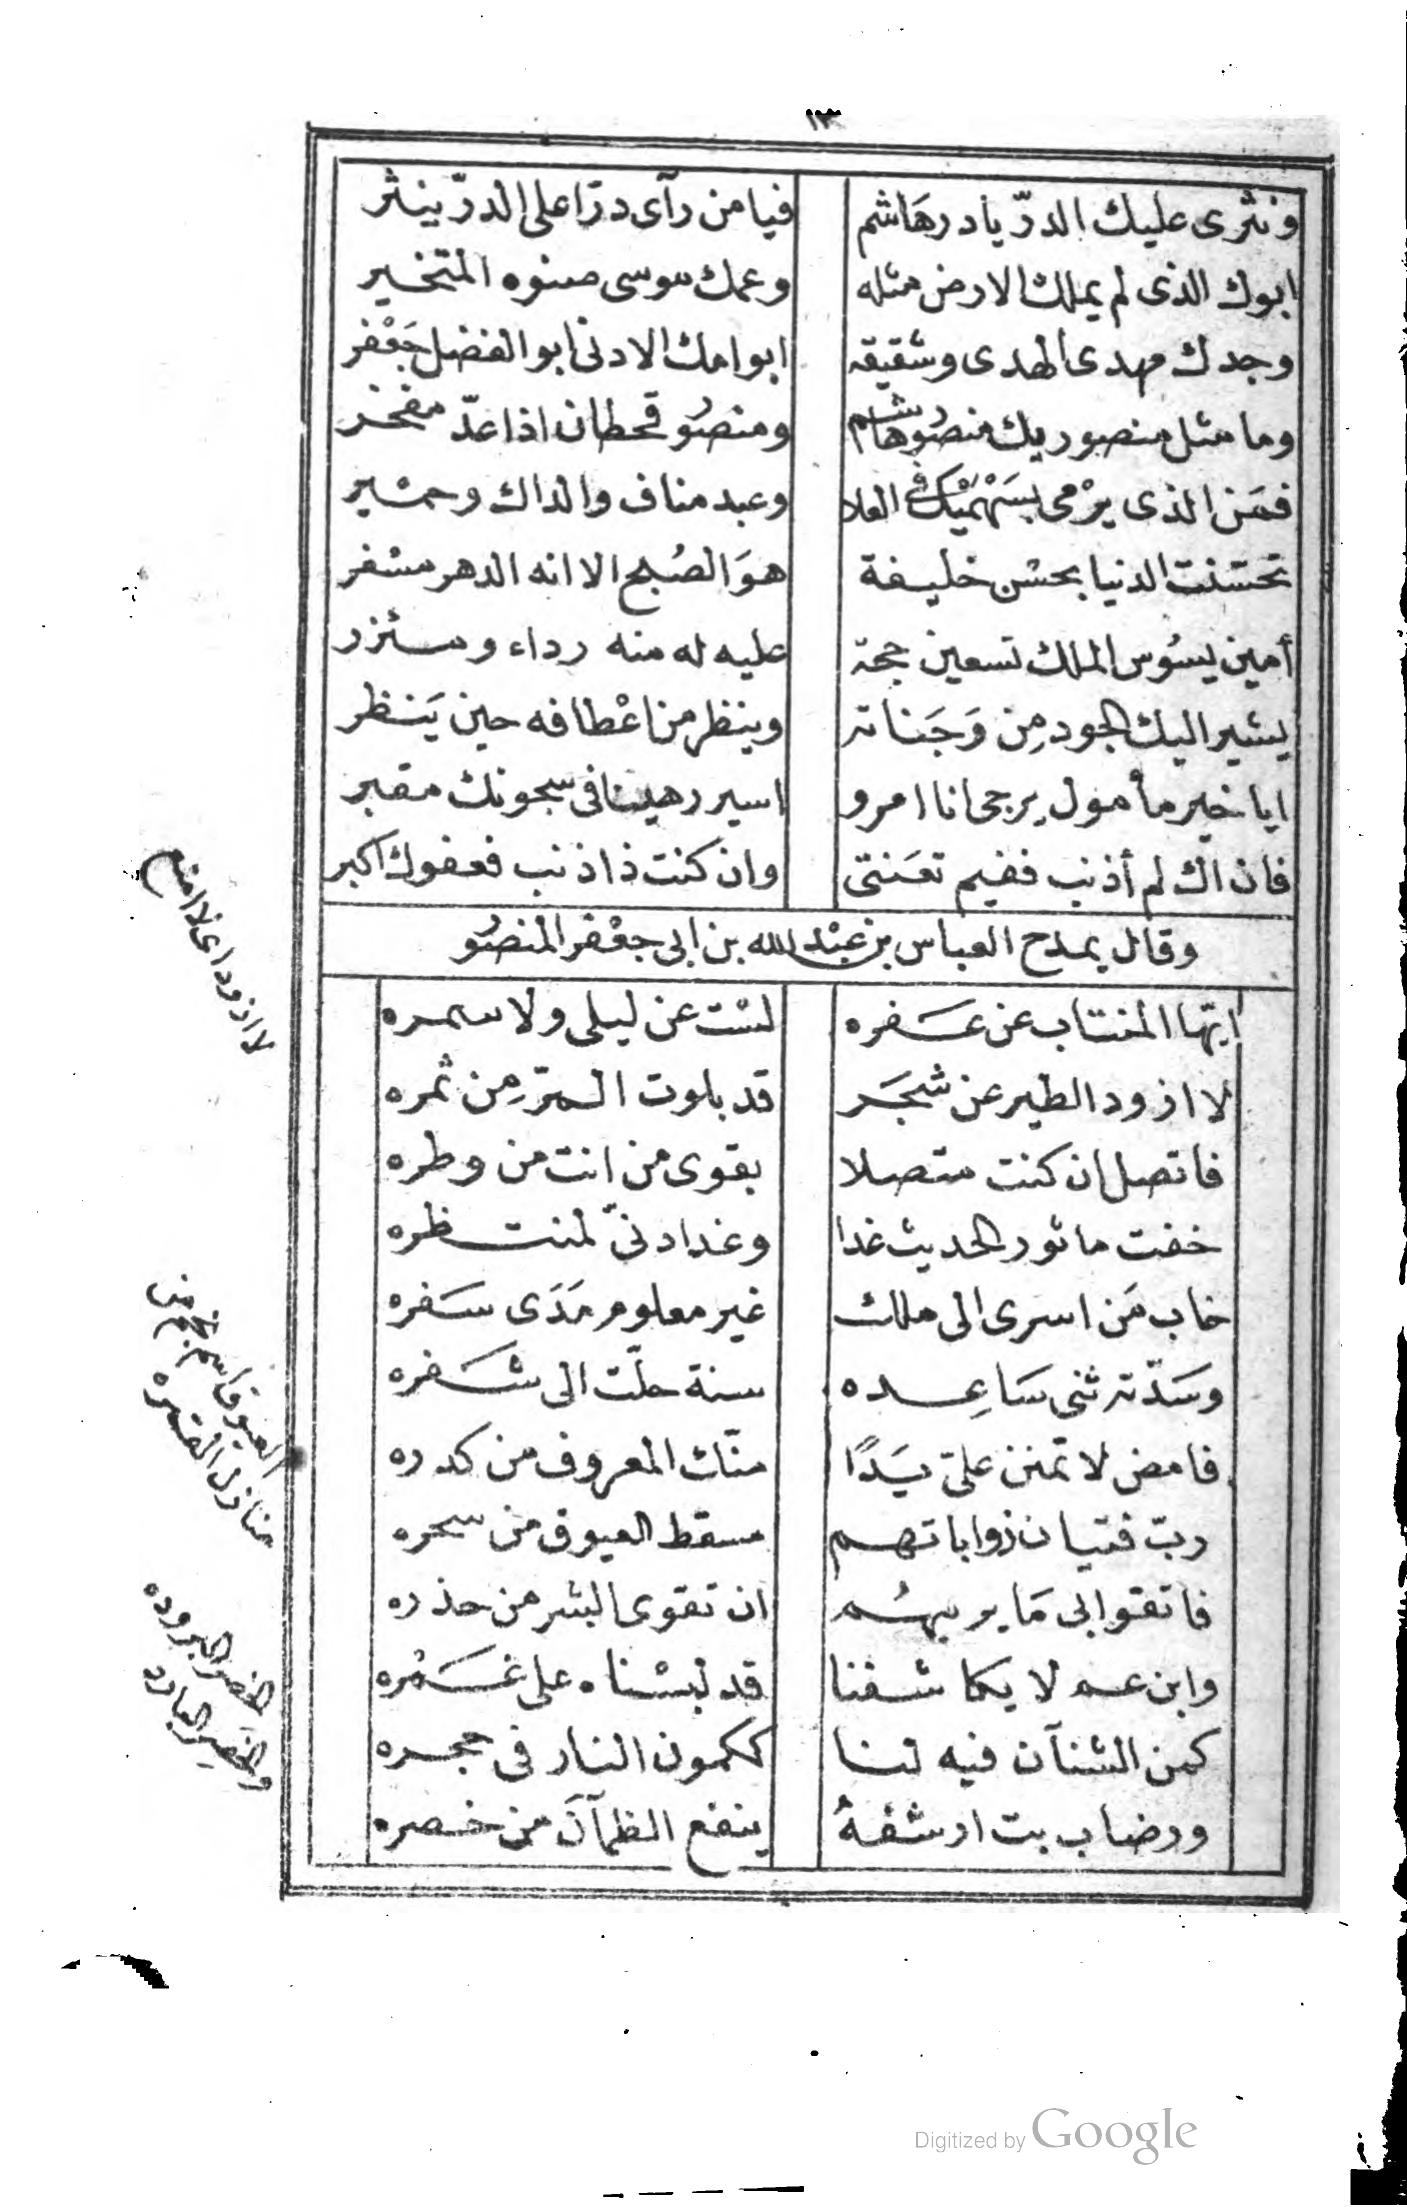 ١٣
ونثرى عليك الدرّ يا درهَاشم فيا من رآى درّا على الدرّ ينثر
ابوك الذى لم يملك الارض مثله وعمك موسى صنوه المتخير
وجدك مهدى الهدى وشقيقه ابوامك الادنى ابو الفضل جَعْفر
وما مثل منصوريك منصُورهاشم ومنصُور قحطان اذا عدّ مفخر
فمَن الذى يرْمى بسَهْمَيْك فى العلا وعبد مناف والداك وحمير
تحسّنت الدنيا بحسْن خليفة هوَ الصُبح الا انه الدهر مسْفر
أمين يسُوس الملك تسعين حجة عليه له منه رداء ومئزر
يشير اليك الجود مِن وَجَناته وينظر من اعْطافه حين يَنظر
ايا خير مأمول يرجى انا امرو اسير رهين فى سجونك مقبر
فان اك لم أذنب ففيم تعَنتى وان كنت ذاذنب فعفوك اكبر
وقال يمدح العباس بن عبْد الله بن ابى جعْفر المنصُور
ايّها المنتاب عن عَفره لسْت عن ليلى ولا سمره
لا اذود الطير عن شجَر قد بلوت المرّ مِن ثمره
فاتصل ان كنت متصلا بقوى من انت من وطره
خفت ماثور الحديث غدا وغدا دنىّ لمنتظره
خاب مَن اسرى الى ملك غير معلوم مَدَى سَفره
وسَدّته ثنى سَاعِده سنة حلّت الى شفره
فامض لا تمنن علىّ يَدًا منّك المعروف من كدره
ربّ فتيان ذواباتهم مسقط العيوق من سحره
فاتقوا بى مَا يريبهُم ان تقوى الشر من حذره
وابن عم لا يكاشفنا قد لبسْناه على غَمْره
كمن الشنآن فيه لنا ككمون النار فى حجره
ورضاب بت ارشفهُ ينفع الظمآن من خصره
لا اذود اى لا امنع
العيوق اسم نجم من
منازل القمره
الخصر البروده
والخَصِر البارد
Digitized by Google